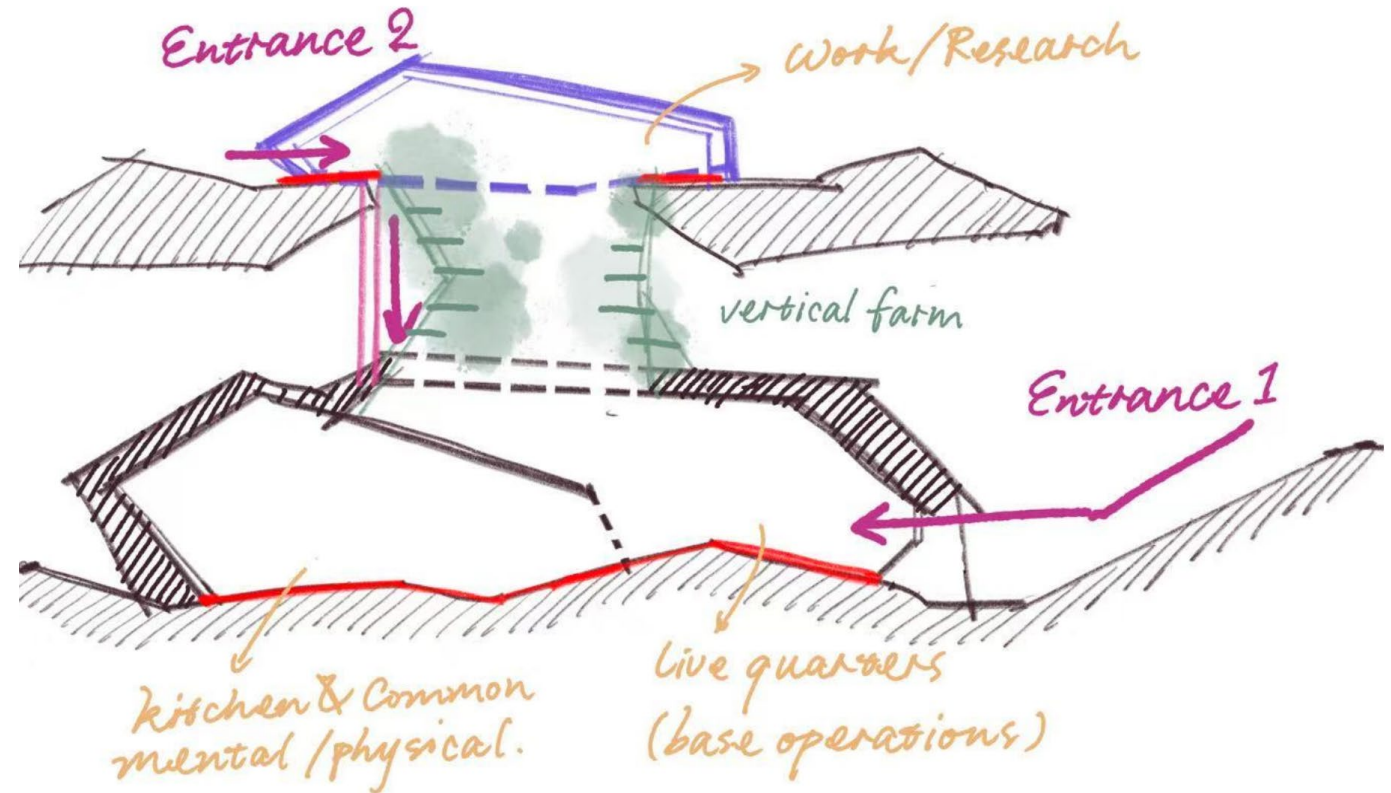 Entrance 2
Work/Research
vertical farm
Entrance 1
kitchen & Common
mental/physical.
Live quarters
(base operations)